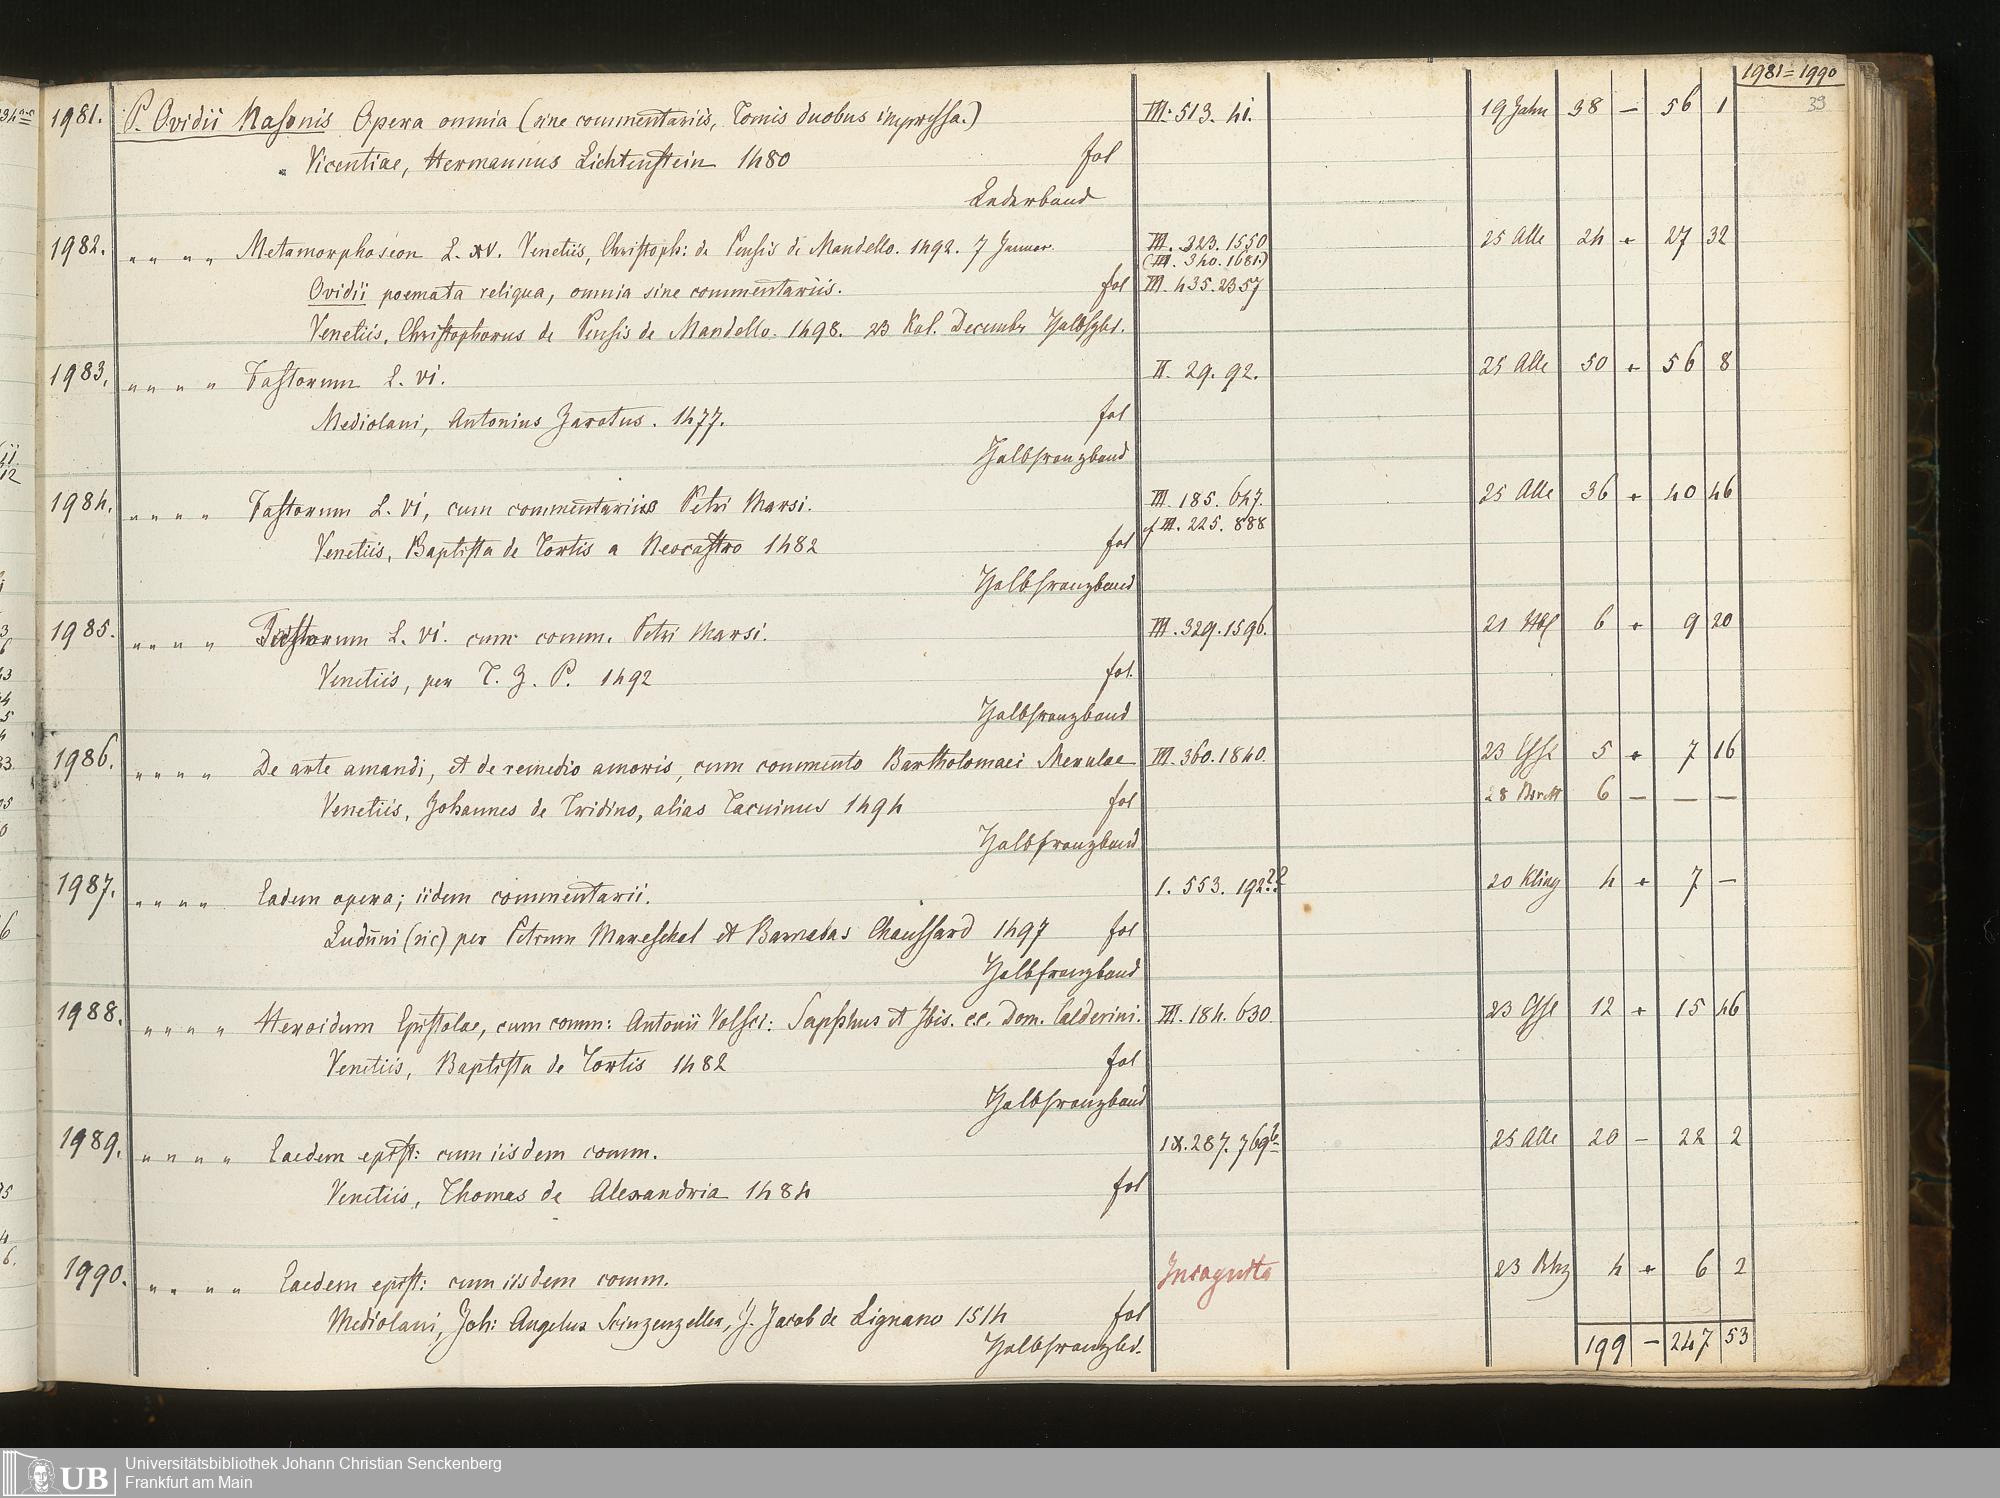 1981 = 1990
39
1981. P. Ovidii Nasonis Opera omnia (sine commentariis, Tomis duobus impressa.) III. 513. 41. 19 Jahn 38 — 56 1
Vicentiae, Hermannus Lichtenstein 1480 fol
Lederband
1982. " " " " Metamorphoseon L. XV. Venetiis, Christoph: de Pensis de Mandello. 1492. 7 Januar. III. 323. 1550 25 Alle 24 " 27 32
(III. 340. 1681.)
Ovidii poemata reliqua, omnia sine commentariis. fol III. 435. 2357
Venetiis, Christophorus de Pensis de Mandello. 1498. 23 Kal. Decembr Halbfzbd.
1983. " " " " Fastorum L. VI. II. 29. 92. 25 Alle 50 " 56 8
Mediolani, Antonius Zarotus. 1477. fol
Halbfranzband
1984. " " " " Fastorum L. VI, cum commentariis Petri Marsi. III. 185. 647. 25 Alle 36 " 40 46
cf III. 225. 888
Venetiis, Baptista de Tortis a Neocastro 1482 fol
Halbfranzband
1985. " " " " Fastorum L. VI. cum comm. Petri Marsi. III. 329. 1596. 21 6 " 9 20
Venetiis, per T. Z. P. 1492 fol.
Halbfranzband
1986. " " " " De arte amandi, et de remedio amoris, cum commento Bartholomaei Merulae III. 360. 1840. 23 5 " 7 16
28 6 — — —
Venetiis, Johannes de Tridino, alias Tacuinus 1494 fol
Halbfranzband
1987. " " " " Eadem opera; iidem commentarii. I. 553. 192?? 20 Kling 4 " 7 —
Luduni (sic) per Petrum Mareschal et Barnabas Chaussard 1497 fol
Halbfranzband
1988. " " " " Heroidum Epistolae, cum comm: Antonii Volsci: Sapphus et Ibis. c.c. Dom. Calderini. III. 184. 630. 23 12 " 15 46
Venetiis, Baptista de Tortis 1482 fol
Halbfranzband
1989. " " " " Eaedem epist: cum iisdem comm. IX. 287. 769b 25 Alle 20 — 22 2
Venetiis, Thomas de Alexandria 1484 fol
1990. " " " " Eaedem epist: cum iisdem comm. Incognita 23 4 " 6 2
Mediolani, Joh: Angelus Scinzenzeller, J. Jacob de Lignano 1514 fol
Halbfranzbd.
199 — 247 53
UB
Universitätsbibliothek Johann Christian Senckenberg
Frankfurt am Main